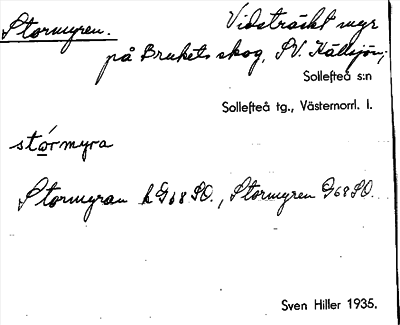 Stormyren. Vidsträckt myr
på Brukets skog, SV. Källsjön;
Sollefteå s:n
Sollefteå tg., Västernorrl. l.
stórmyra
Stormyran k G68 SO., Stormyren G68 SO.
Sven Hiller 1935.